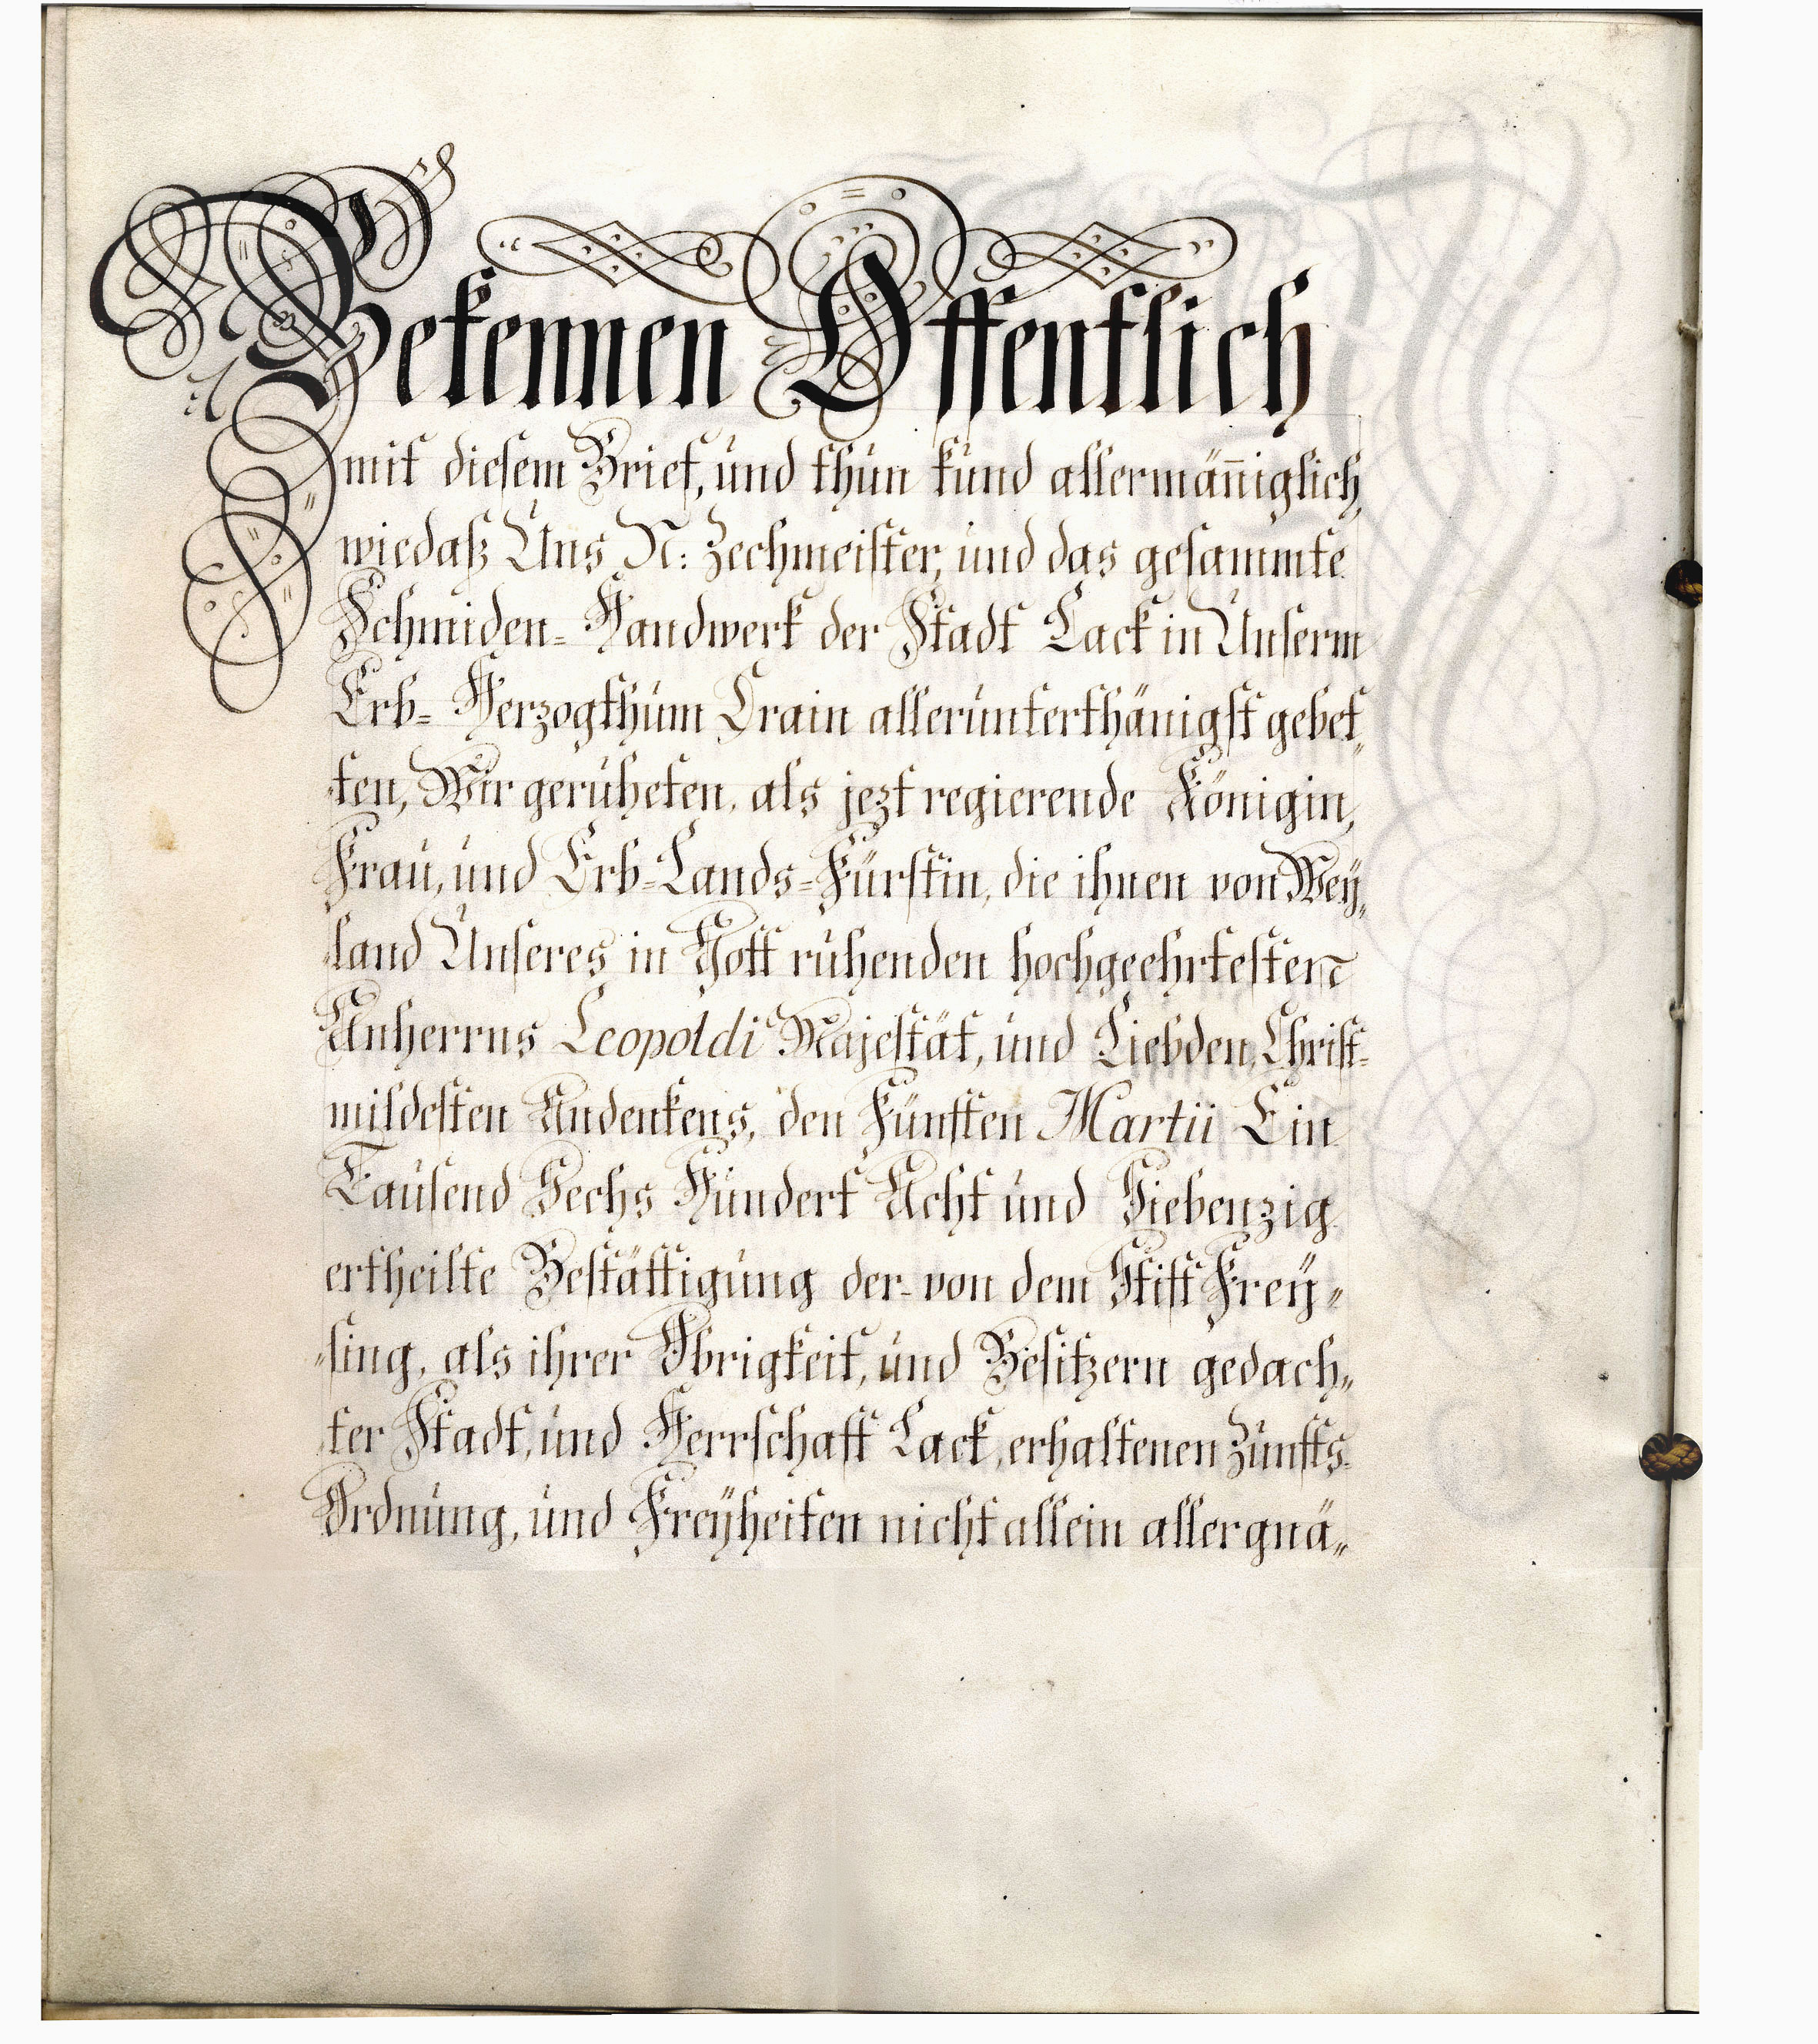 Bekennen Offentlich
mit diesem Brief, und thun kund allermän̄iglich,
wiedaß Uns N: Zechmeister, und das gesammte
Schmiden= Handwerk der Stadt Lack in Unserm
Erb= Herzogthum Crain allerunterthänigst gebet„
ten, Wir geruheten, als jezt regierende Königin,
Frau, und Erb=Lands=Fürstin, die ihnen von Weÿ„
land Unseres in Gott ruhenden hochgeehrtesten
Anherrns Leopoldi Majestät, und Liebden, Christ=
mildesten Andenkens, den Fünften Martii Ein
Tausend Sechs Hundert Acht und Siebenzig
ertheilte Bestättigung der von dem Stift Freÿ„
„sing, als ihrer Obrigkeit, und Besitzern gedach„
ter Stadt, und Herrschaft Lack, erhaltenen Zunfts
Ordnung, und Freÿheiten nicht allein allergnä„